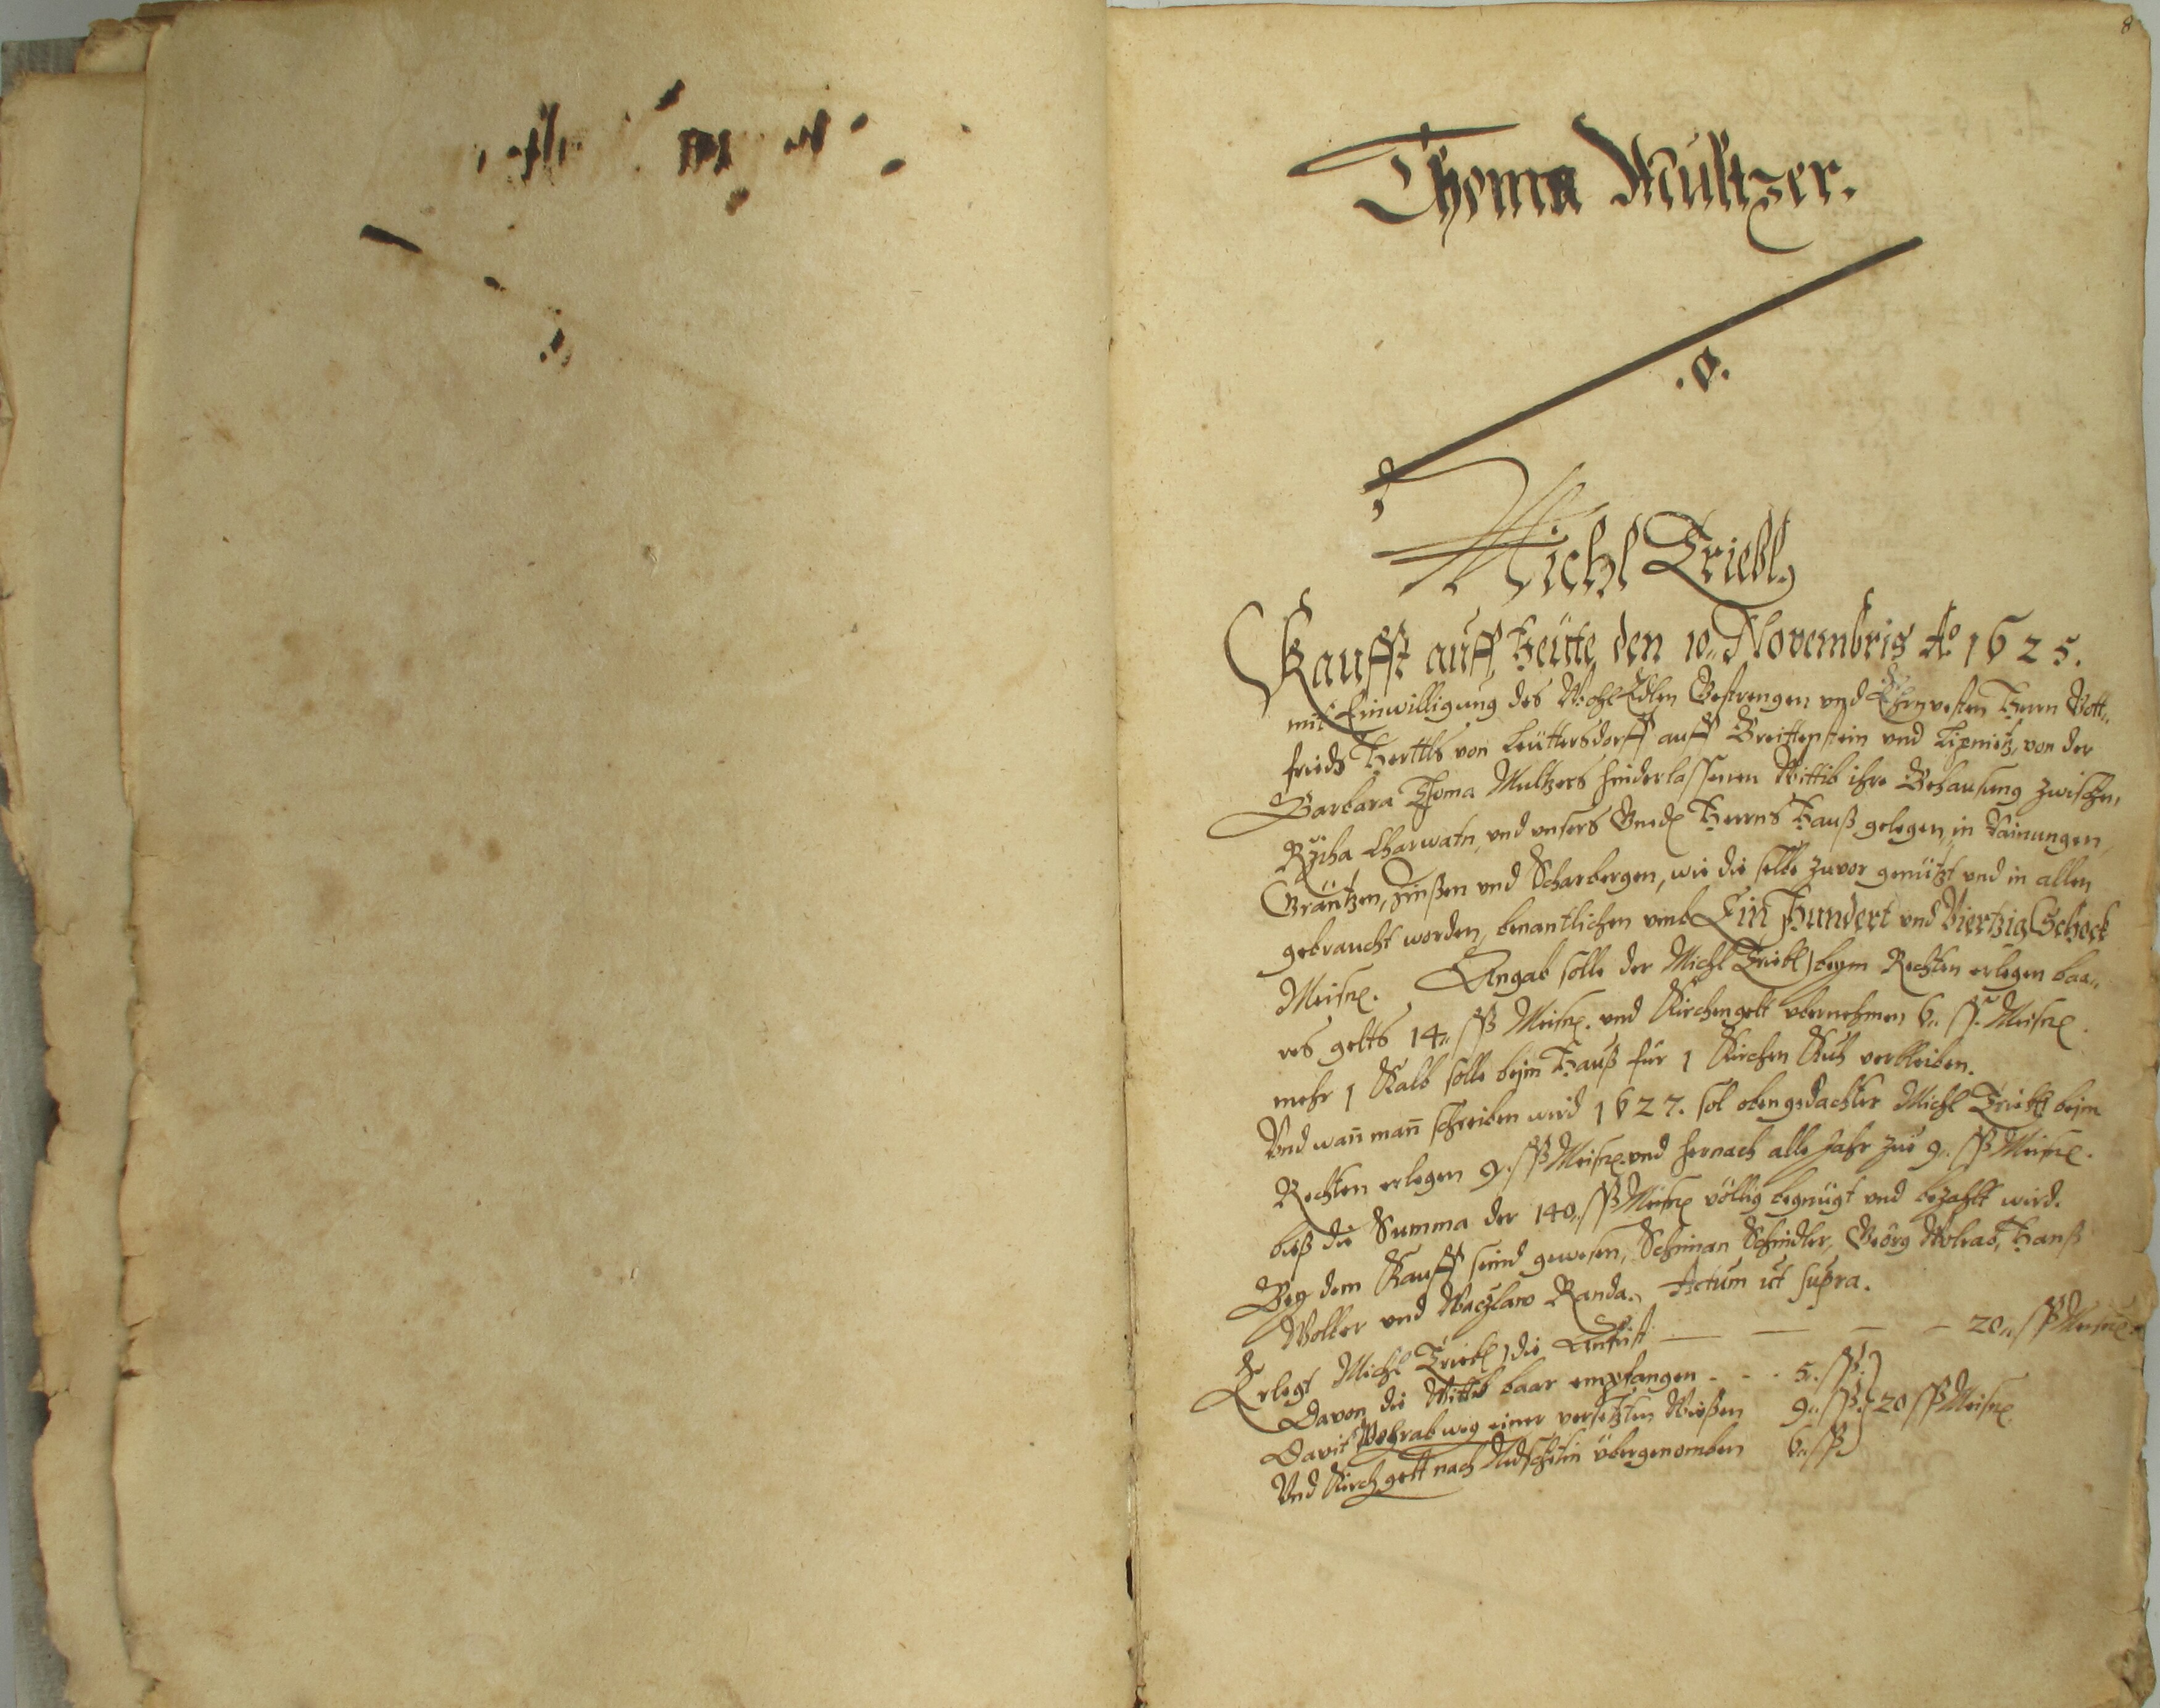 8
Thoma Multzer.
.a.
Michl Triebl,
Kaufft auff Heütte den 10„ Novembris Ao 1625.
mit Einwilligung des WohlEdlen Gestrengen und Ehrnvesten Herrn Gott„
frieds Herttls von Leüttersdorff auff Breittenstein und Lipnitz, von der
Barbara Thoma Multzers hinderlassenen Wittib ihre Behausung zwischen,
Charwatn, und unsers Gned. Herrns Hauß gelegen, in Rainungen,
Gräntzen, Zinßen und Scharbergen, wie die selbe zuvor genützt und in allen
gebraucht worden, benantlichen umb Ein Hundert und Viertzig Schock
Meisn. Angab solle der Michl Triebl beym Rechten erlegen baa„
res gelts 14„ ßß Meisn. und Kirchengelt ubernehmen 6„ ß. Meisn.
mehr 1 Kalb solle bejm Hauß für 1 Kirchen Kuh verbleiben.
Und wan̄ man̄ schreiben wird 1627. sol obengedachter Michl Triebl bejm
Rechten erlegen 9. ßß Meisn. und hernach alle Jahr zue 9. ßß Meisn.
bieß die Summa der 140„ ßß Meisn völlig begnügt und bezahlt wird.
Bey dem Kauff seind gewesen, Schiman Schindler, Geörg Hans
Wolker und Waczlaw Randa., Actum ut supra.
Erlegt Michl Triebl die — — — — 20„ ßß Meisn.
Davon die Wittib baar empfangen - - - 5. ßß.
Davit weg einer versetzten Wießen 9„ ßß. 20 ßß Meisn.
Und Kirchgelt nach übergenomben 6„ ßß